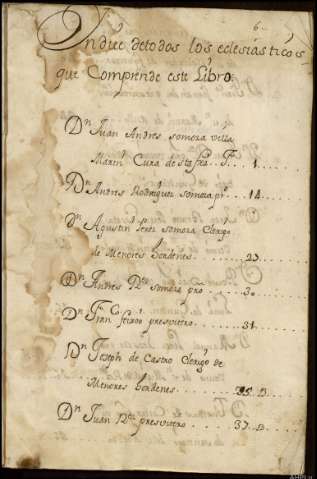 6
Yndice de todos los eclesiasticos
que Comprende este Libro.
Dn Juan Andres somoza villa
Marin Cura de Sta ... Fs 1
Dn Andres Rodriguez somoza pr 14
Dn Agustin Perez somoza Clerigo
de Menores hordenes 23
Dn Andres somoza pro 30
Dn Franco feixoo presvitero 31
Dn Joseph de Castro Clerigo de
Menores hordenes 35 B
Dn Juan presvitero 37 B